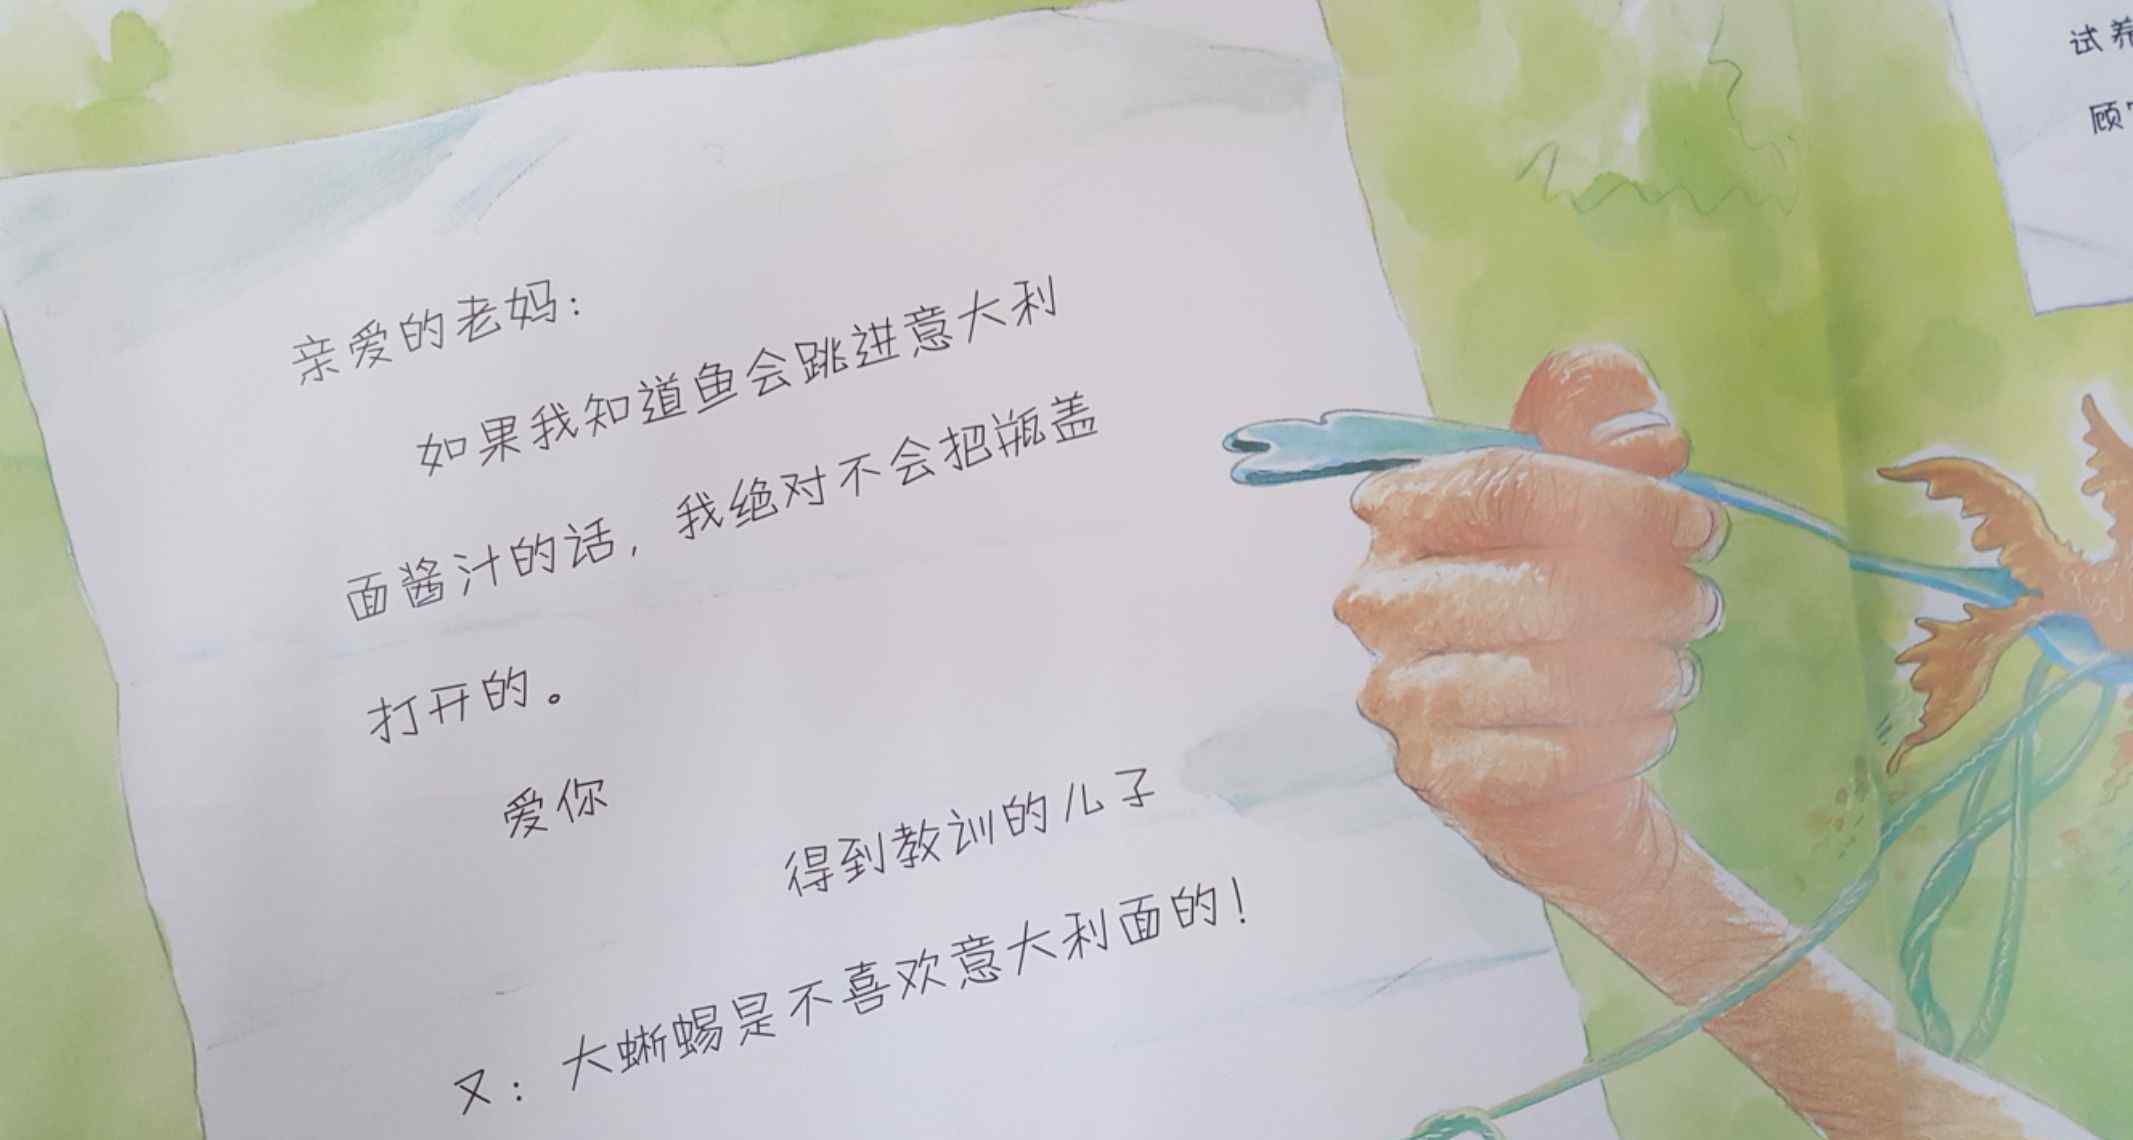 亲爱的老妈：
如果我知道鱼会跳进意大利
面酱汁的话，我绝对不会把瓶盖
打开的。
爱你
得到教训的儿子
又：大蜥蜴是不喜欢意大利面的！
试养
顾